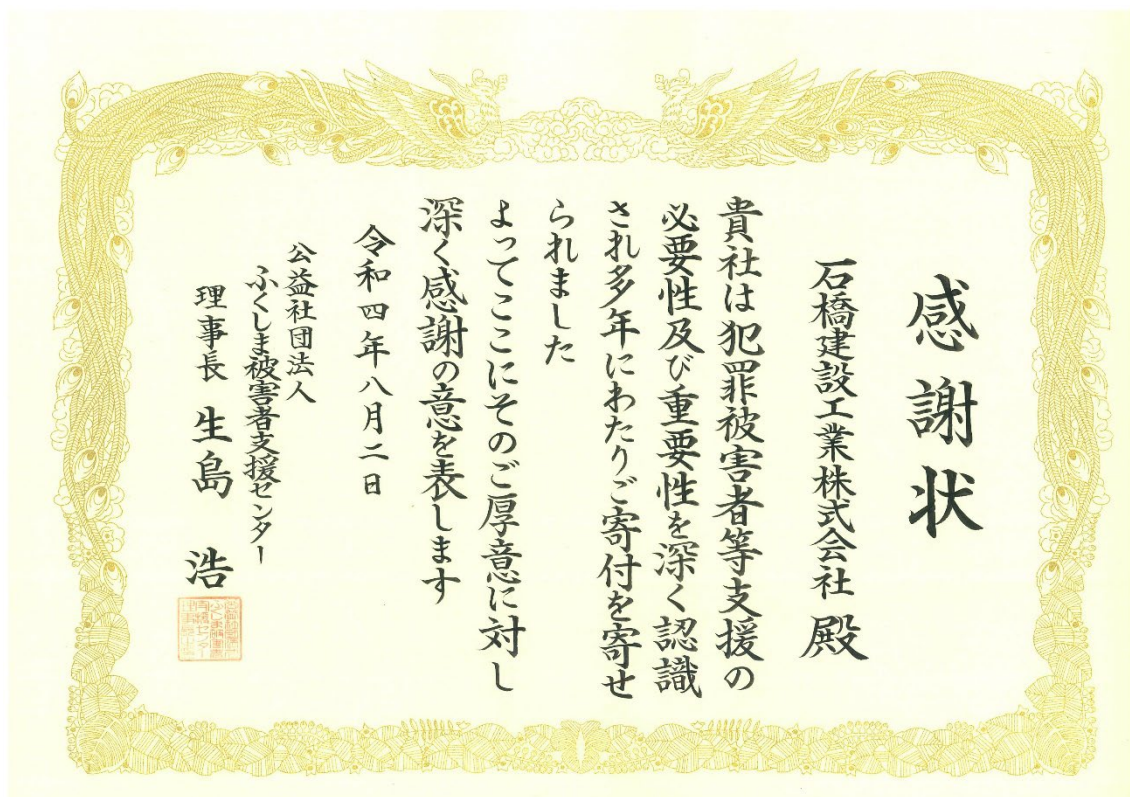 感謝状
石橋建設工業株式会社 殿
貴社は犯罪被害者等支援の
必要性及び重要性を深く認識
され多年にわたりご寄付を寄せ
られました
よってここにそのご厚意に対し
深く感謝の意を表します
令和四年八月二日
公益社団法人
ふくしま被害者支援センター
理事長 生島 浩